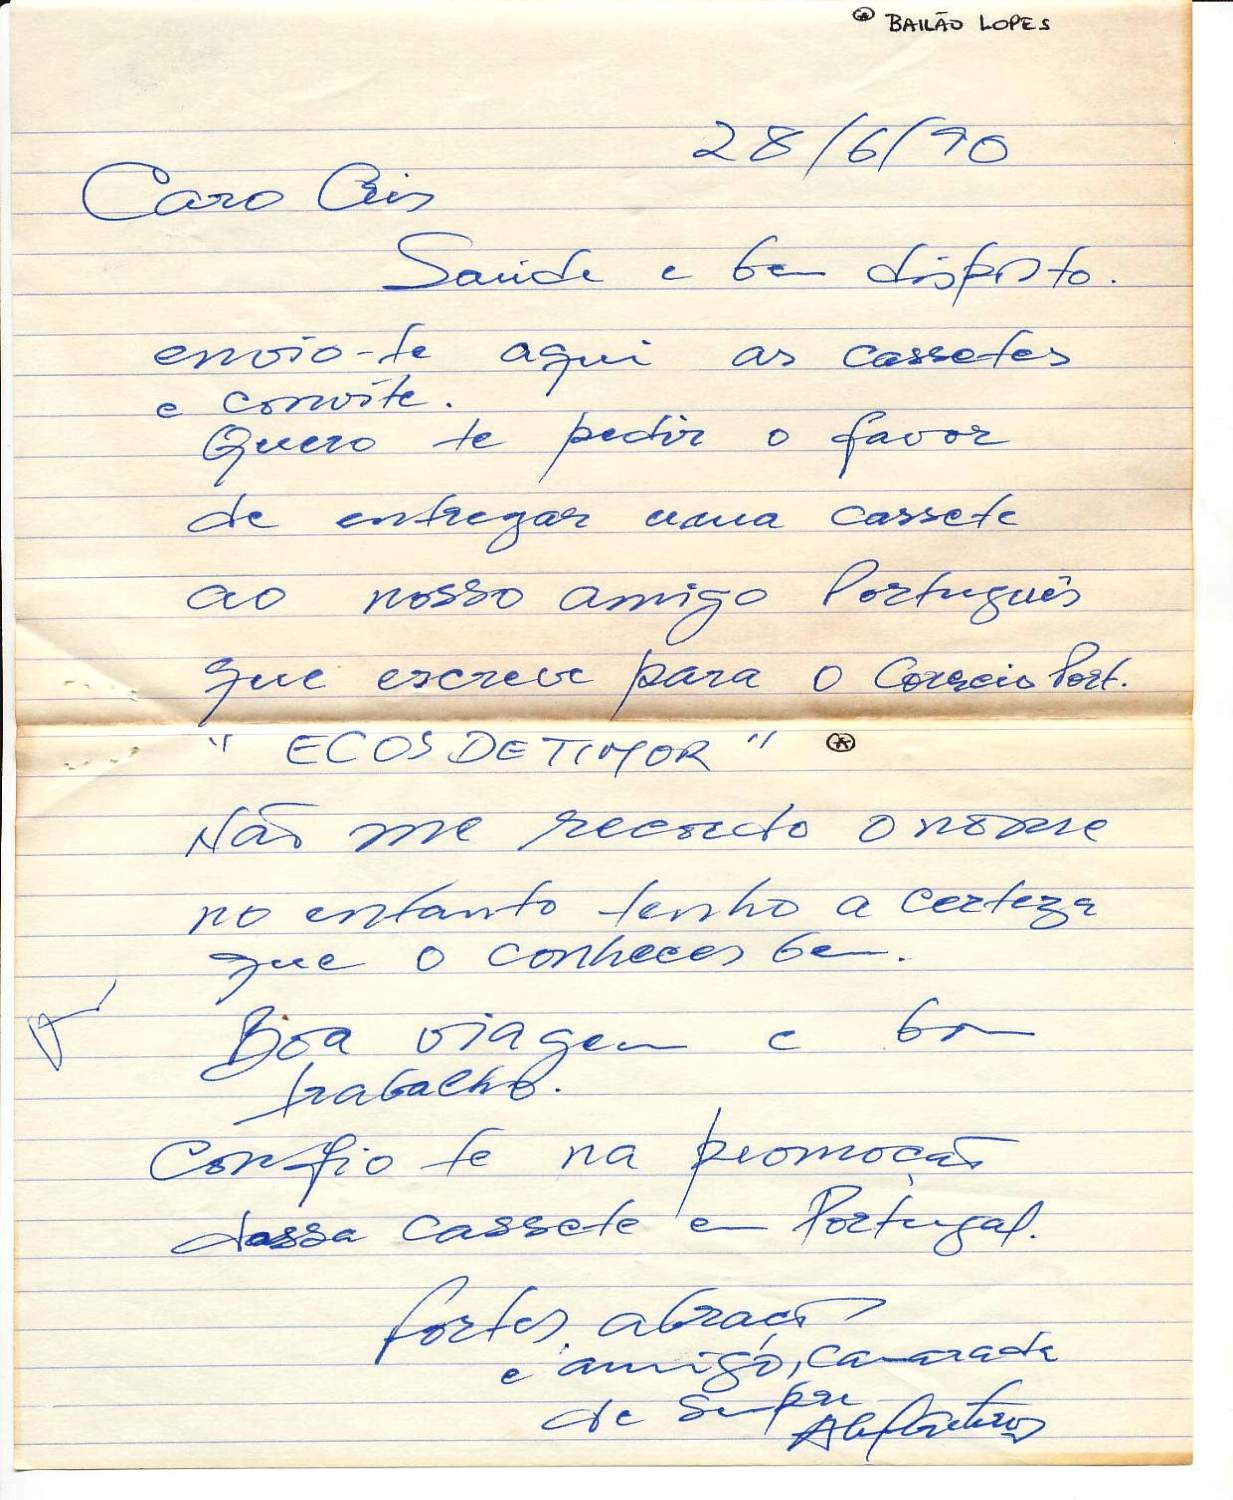 ⊛ BAILÃO LOPES
28/6/90
Caro Cris
Saúde e bem disposto.
envio-te aqui as cassetes
e convite.
Quero te pedir o favor
de entregar uma cassete
ao nosso amigo Português
que escreve para o Correio Port.
" ECOS DE TIMOR " ⊛
Não me recordo o nome
no entanto tenho a certeza
que o conheces bem.
Boa viagem e bom
trabalho.
Confio te na promoção
dessa cassete em Portugal.
fortes abraços
e amigo, camarada
de sempre